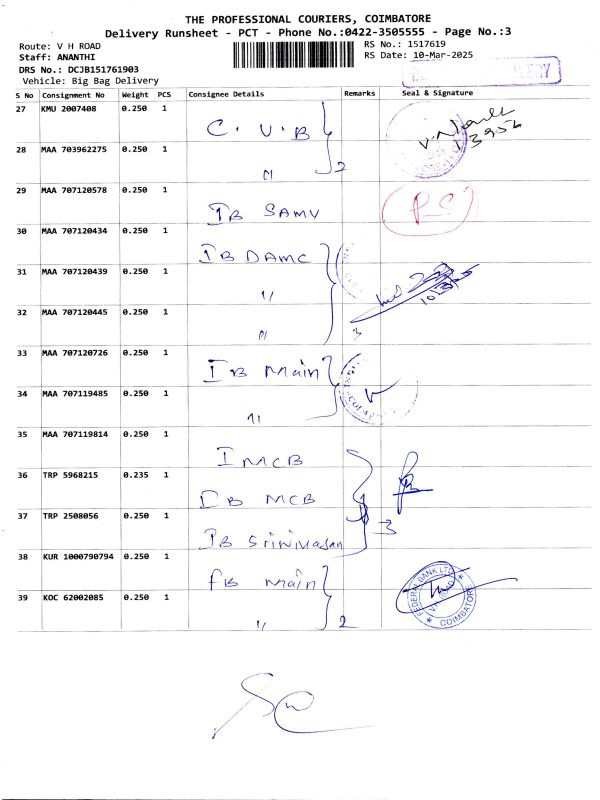 THE PROFESSIONAL COURIERS, COIMBATORE
Delivery Runsheet - PCT - Phone No.:0422-3505555 - Page No.:3
Route: V H ROAD
RS No.: 1517619
Staff: ANANTHI
RS Date: 10-Mar-2025
DRS No.: DCJB151761903
Vehicle: Big Bag Delivery
S No Consignment No Weight PCS Consignee Details Remarks Seal & Signature
27 KMU 2007408 0.250 1 C. V. B
13956
28 MAA 703962275 0.250 1 " 2
29 MAA 707120578 0.250 1 IB SAMV
30 MAA 707120434 0.250 1 IB DAMC
31 MAA 707120439 0.250 1 "
32 MAA 707120445 0.250 1 " 3
33 MAA 707120726 0.250 1 IB Main
34 MAA 707119485 0.250 1 "
35 MAA 707119814 0.250 1 IMCB
36 TRP 5968215 0.235 1 IB MCB
37 TRP 2508056 0.250 1 IB Srinivasan 3
38 KUR 1000790794 0.250 1 FB Main
39 KOC 62002085 0.250 1 " 2
FEDERAL BANK LTD
COIMBATORE